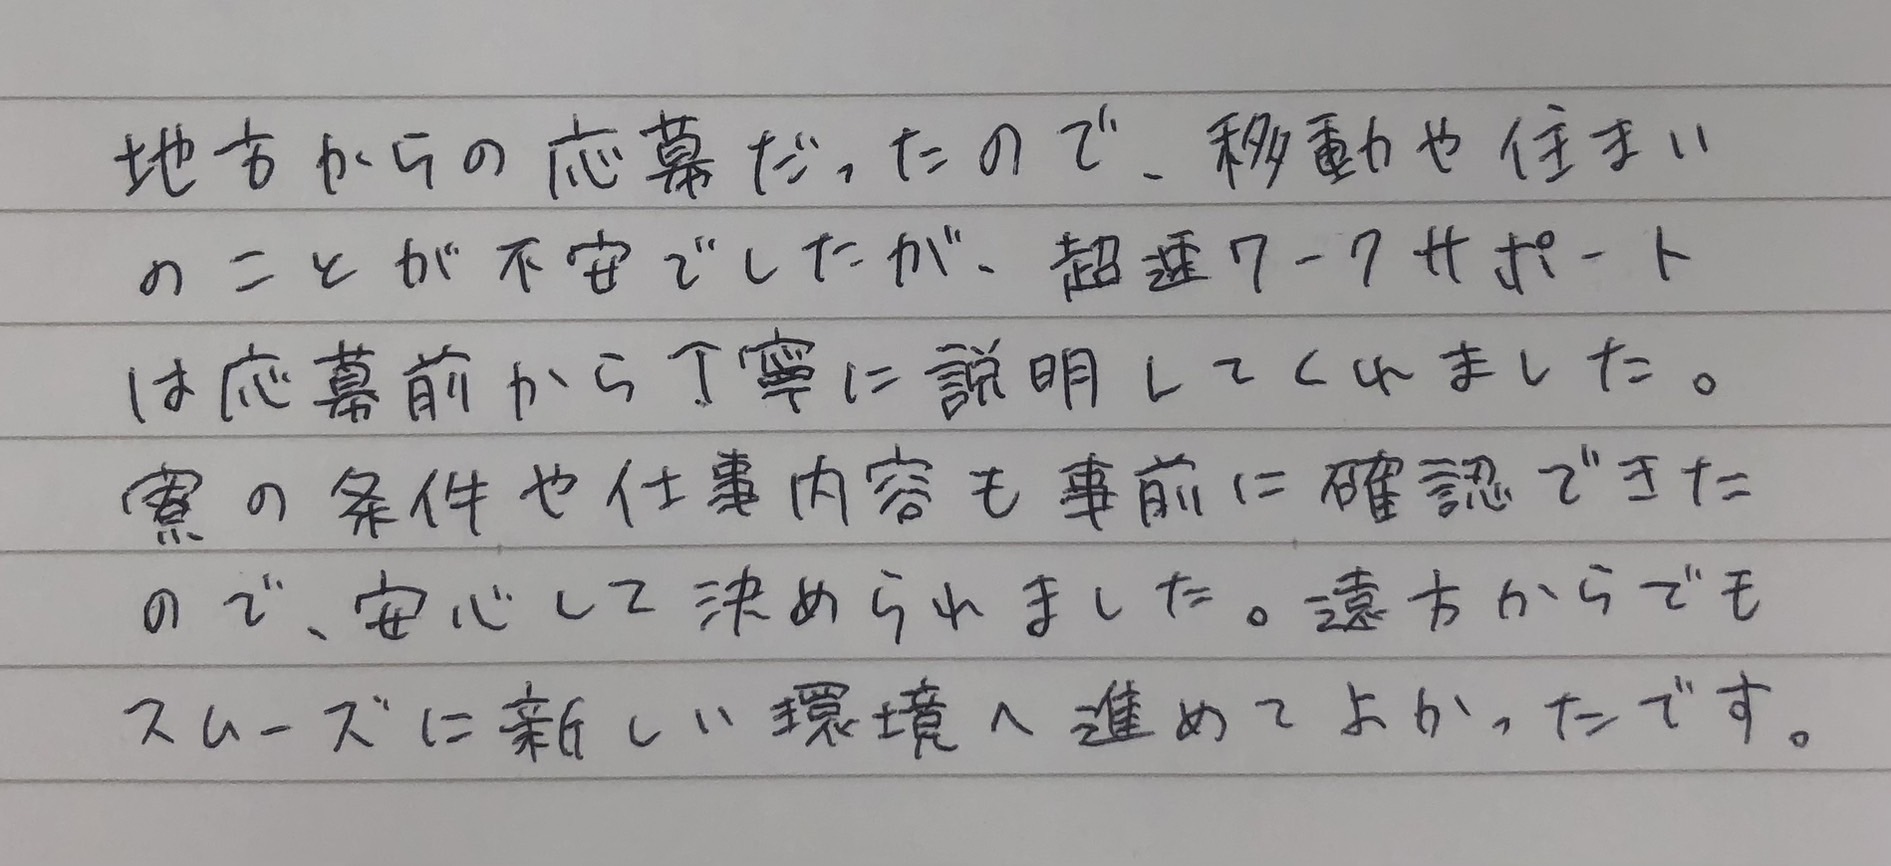 地方からの応募だったので、移動や住まい
のことが不安でしたが、超速ワークサポート
は応募前から丁寧に説明してくれました。
寮の条件や仕事内容も事前に確認できた
ので、安心して決められました。遠方からでも
スムーズに新しい環境へ進めてよかったです。